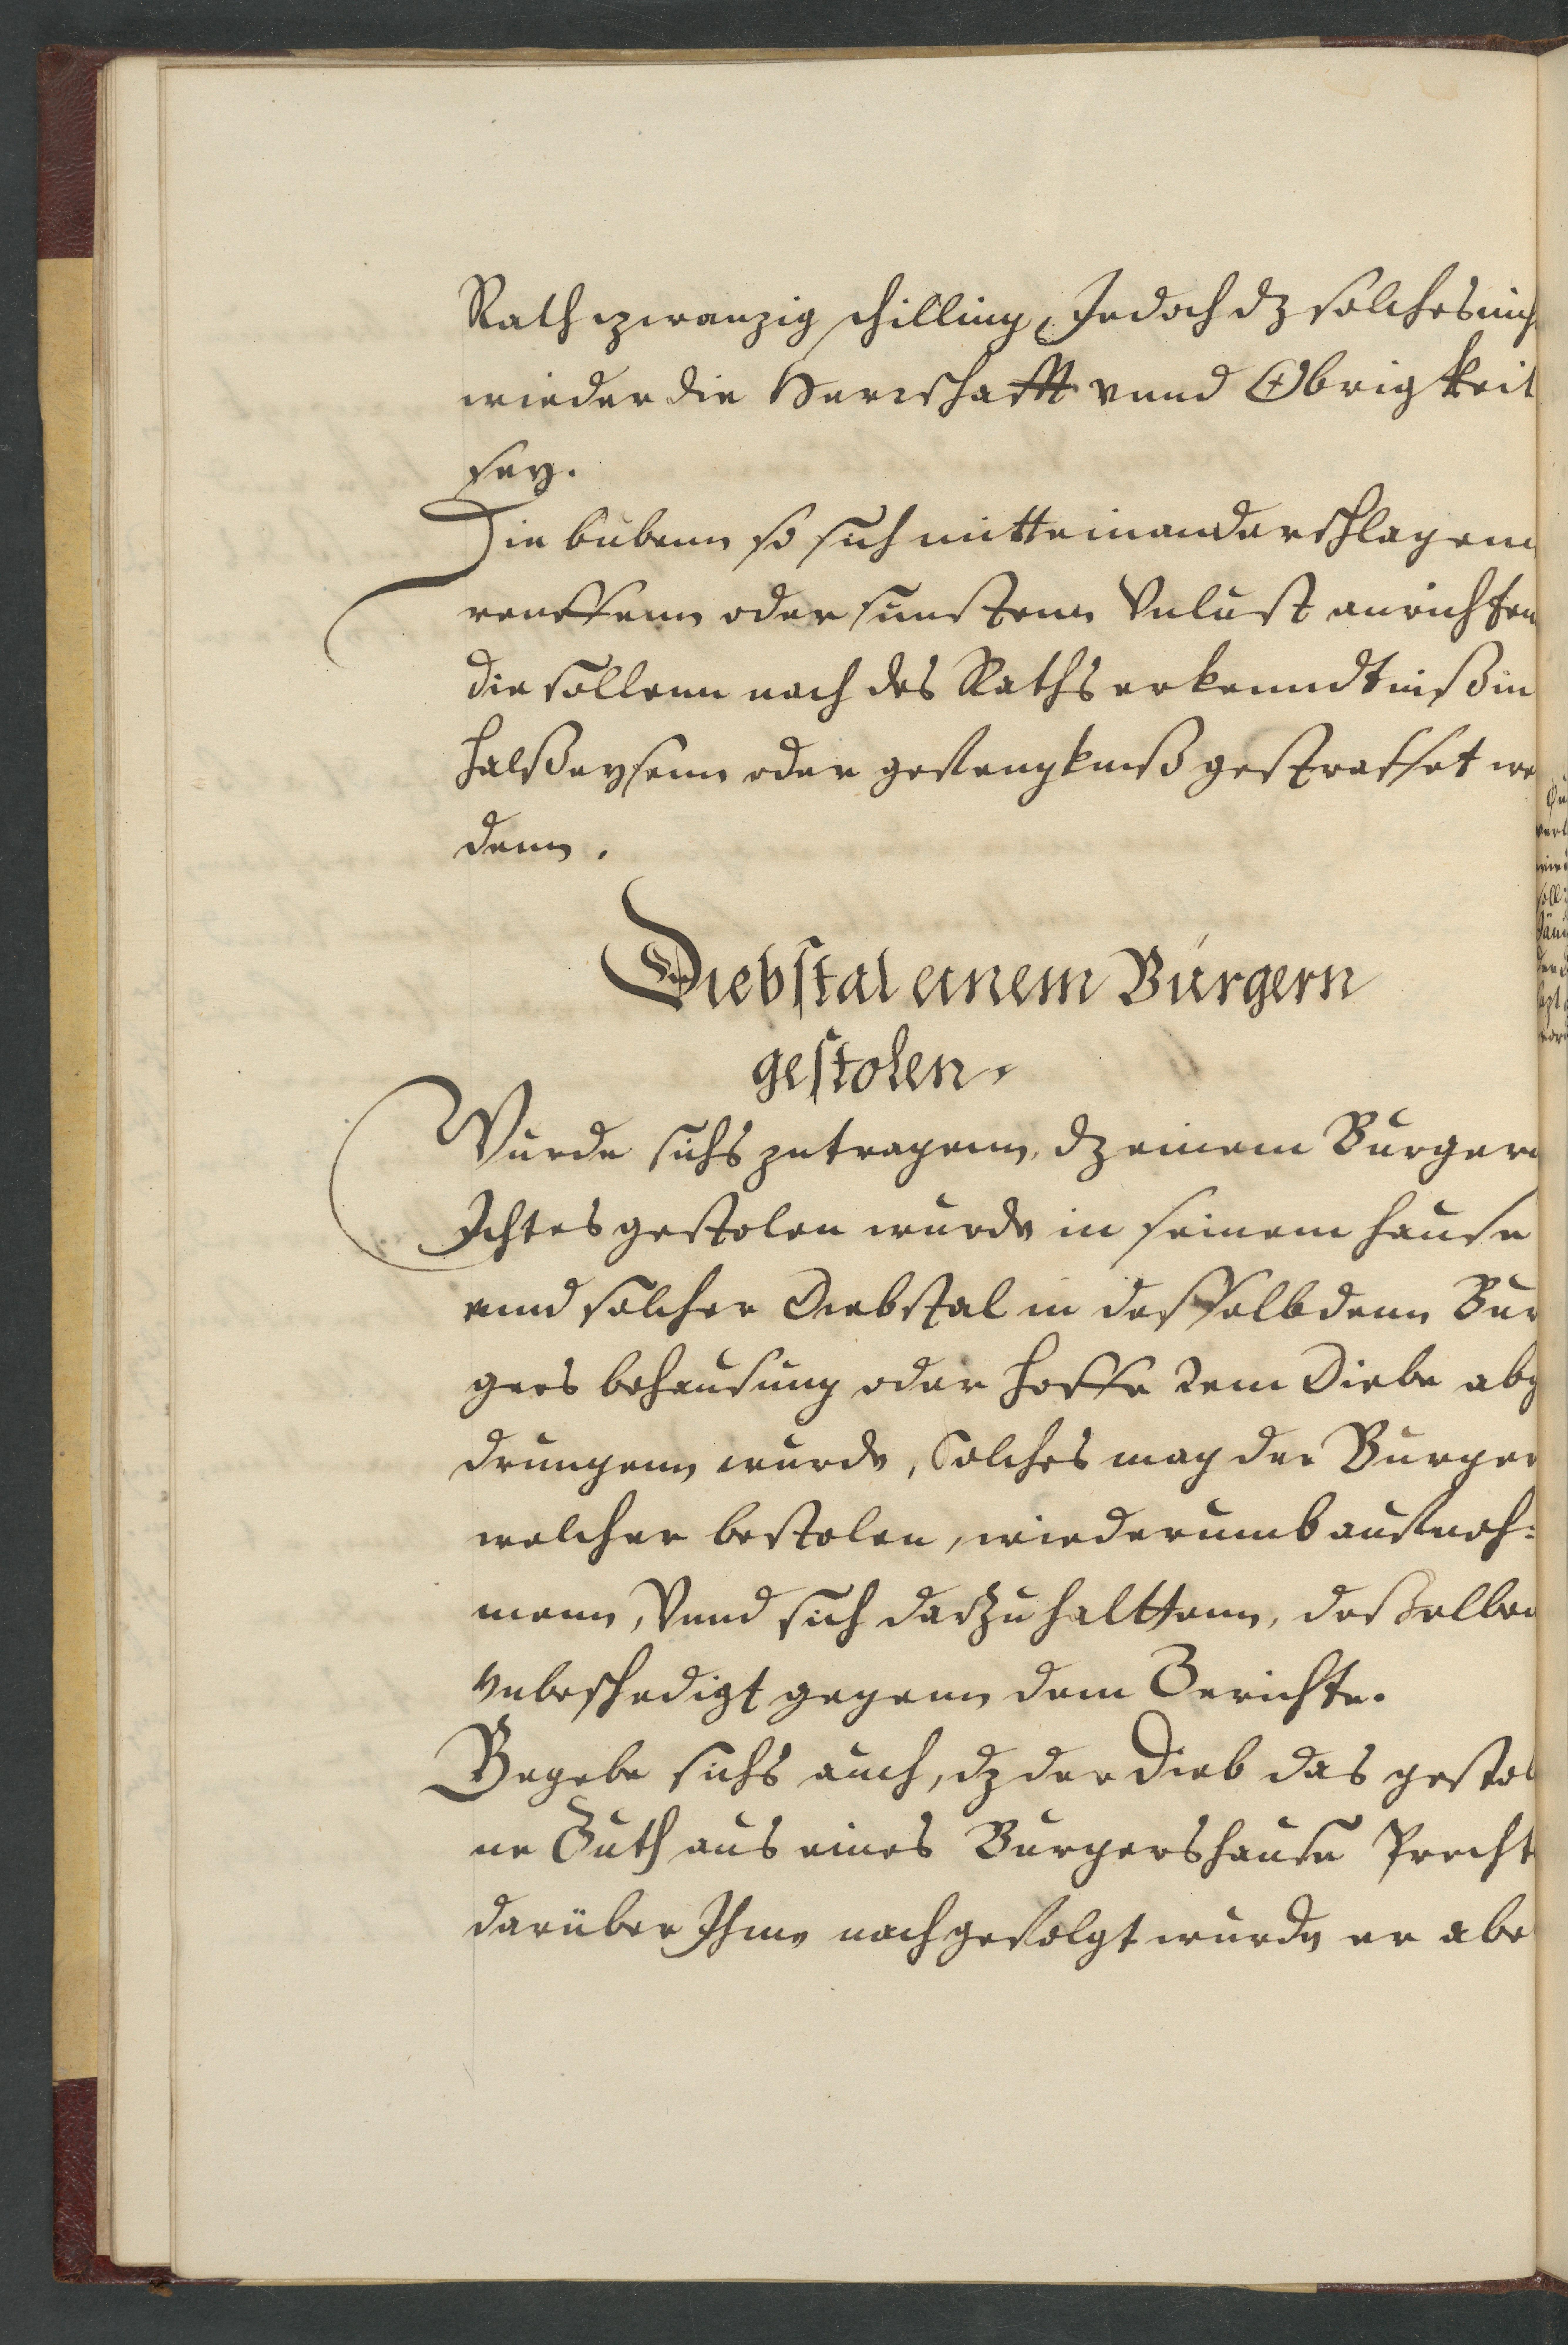 Rath czwanzig schilling, Jedoch dz solches nich
wieder die Herrschafft vnnd Obrigkeit
sey.
Die bubenn so sich mitteinander schlagenn
reuffenn oder sunstenn Vnlust anrichten
die sollenn nach des Raths erkenndtniß in
halßeysenn oder gefengkniß gestraffet we
denn.
Diebstal einem Burgern
gestolen.
Wurde sichs zutragenn, dz einem Burgern
Ichtes gestolen wurde in seinem hause
vnnd solcher Diebstal in desselbdenn Bur
gers behausung oder hoffe dem Diebe abg
drungenn wurde, Solches mag der Burger
welcher bestolen, wiederumb aufneh:
menn, Vnnd sich darzu halttenn, deßelben
vnbeschedigt gegenn dem Gerichte.
Begebe sichs auch, dz der Dieb das gestol
ne Guth aus eines Burgers hause Precht
darüber Ihme nachgefolgt wurde er abe